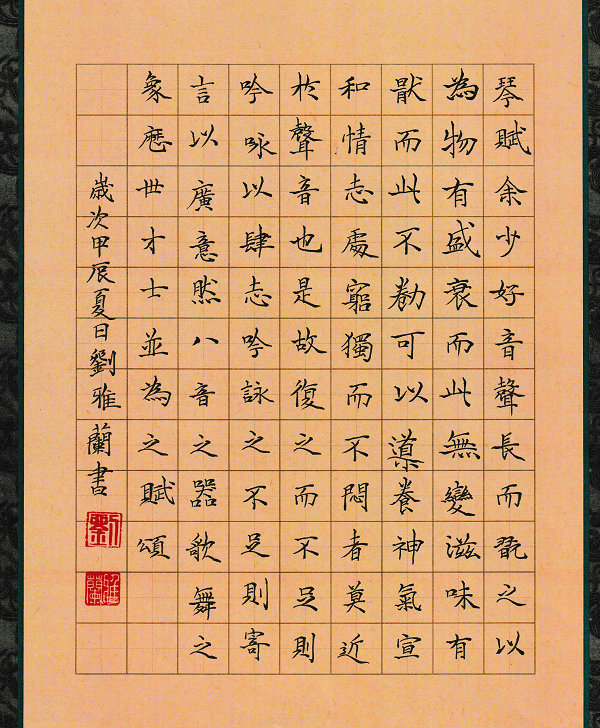 琴賦余少好音聲長而翫之以
為物有盛衰而此無變滋味有
猒而此不勌可以導養神氣宣
和情志處窮獨而不悶者莫近
於聲音也是故復之而不足則
吟咏以肆志吟詠之不足則寄
言以廣意然八音之器歌舞之
象歷世才士並為之賦頌
歲次甲辰夏日劉雅蘭書
劉
雅蘭